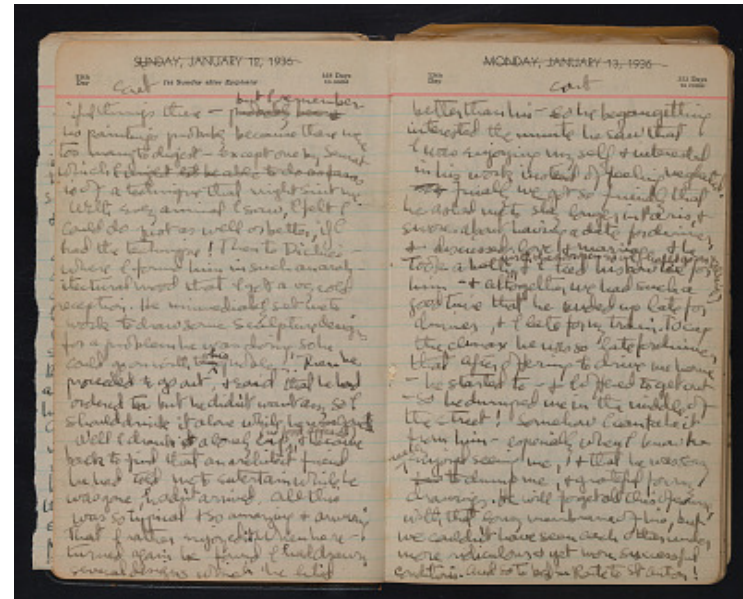 SUNDAY, JANUARY 12, 1936
12th Day
1st Sunday after Epiphany
cont
of things there – but I remember
no paintings probably because there were
too many to digest – except one by Seurat
which I
of a technique that might suit me
Well, every animal I saw, I felt I
could do just as well or better, if I
had the technique! Then to
where I found him in such an arch-
itectural mood that I got a very cold
reception. He immediately set me to
work to draw some sculpture designs
for a problem he was doing so he
could go on with Then he
proceeded to go out, & said that he had
ordered tea but he didn't want any, so I
should drink it alone while he was gone
Well I drank a lonely cup, & he came
back to find that an architect friend
he had told me to entertain while he
was gone, hadn't arrived. All this
was so typical & so amazing & amusing
that I rather enjoyed it. When he re-
turned again he found I had drawn
several designs which he liked
MONDAY, JANUARY 13, 1936
13th Day
353 Days to come
cont
better than his – so he began getting
interested the minute he saw that
I was enjoying myself & interested
in his work instead of feeling neglected
Finally we got so friendly that
he asked me to stay longer in Paris, &
swore about having a date for dinner,
& discussed love & marriage & he
took a bath, & I
him – & altogether we had such a
good time that he ended up late for
dinner, & I late for my train. To cap
the climax he was so late for dinner,
that after offering to drive me home
– he started to – & I offered to get out
– so he dumped me in the middle of
the street! Somehow I can take it
from him – especially when I know he
enjoyed seeing me, & that he was sorry
to dump me, & grateful for my
drawings. He will forget all this
with that funny of his, but
we couldn't have seen each other under
more ridiculous & yet more successful
conditions. And so to begin Route to St Anton!